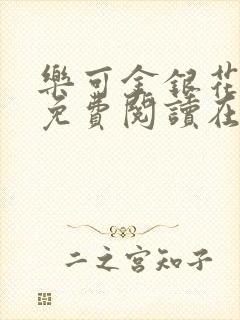 樂可金銀花
免費閱讀在
二之宮知子